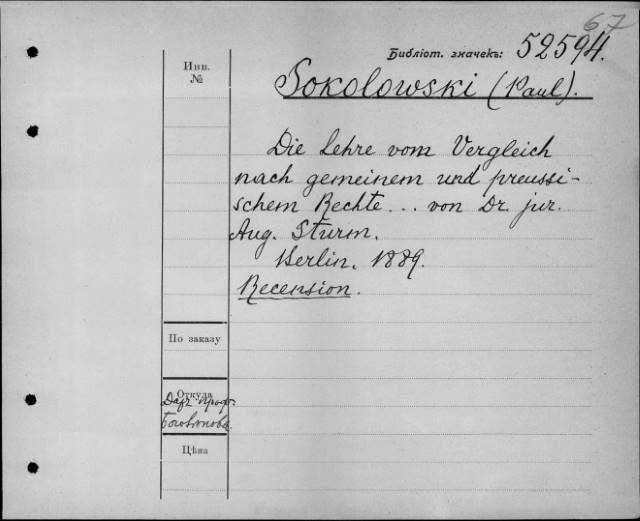 67
Библіот. значекъ: 52594.
Инв.
№
Sokolowski (Paul).
Die Lehre vom Vergleich
nach gemeinem und preussi-
schem Rechte... von Dr. jur.
Aug. Sturm.
Berlin. 1889.
Recension.
По заказу
Откуда
Даръ проф.
Боголѣпова
Цѣна